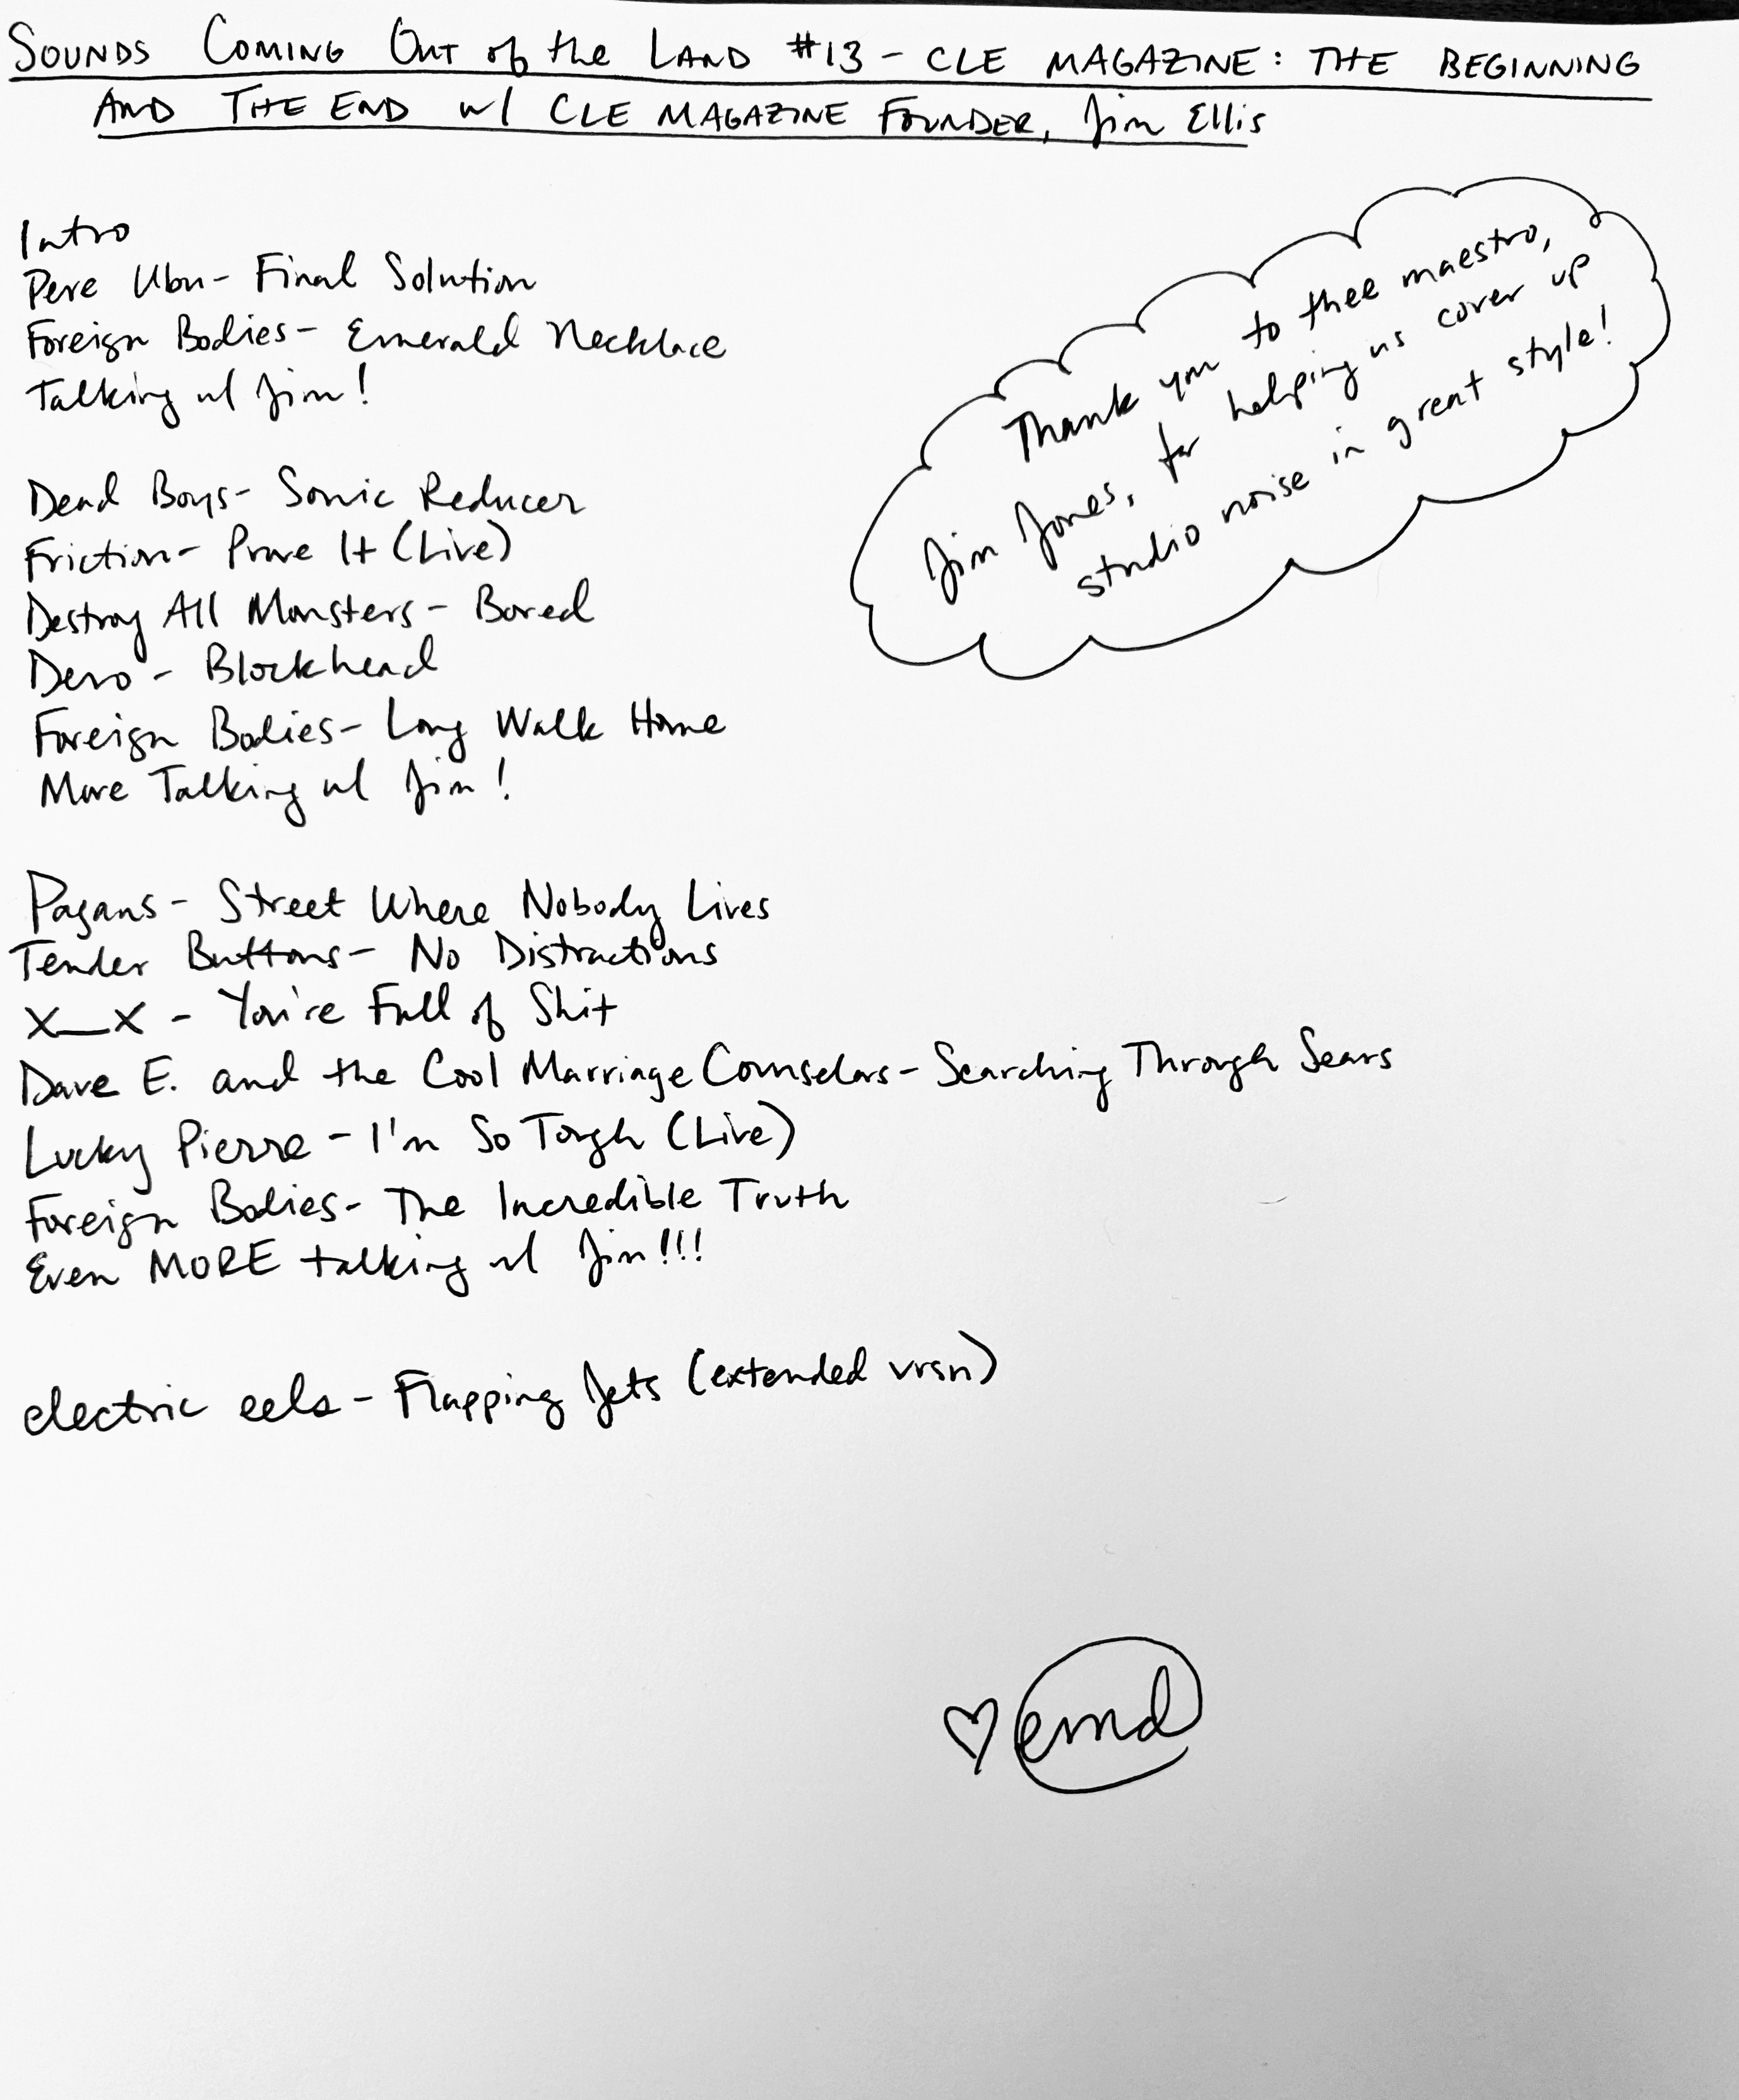 SOUNDS COMING OUT of the LAND #13 - CLE MAGAZINE: THE BEGINNING
AND THE END w/ CLE MAGAZINE FOUNDER, Jim Ellis
Intro
Pere Ubu- Final Solution
Foreign Bodies- Emerald Necklace
Talking w/ Jim!
Thank you to thee maestro,
Jim Jones, for helping us cover up
studio noise in great style!
Dead Boys- Sonic Reducer
Friction- Prove It (Live)
Destroy All Monsters- Bored
Devo- Blockhead
Foreign Bodies- Long Walk Home
More Talking w/ Jim!
Pagans- Street Where Nobody Lives
Tender Buttons- No Distractions
X__X - You're Full of Shit
Dave E. and the Cool Marriage Counselors- Searching Through Sears
Lucky Pierre- I'm So Tough (Live)
Foreign Bodies- The Incredible Truth
Even MORE talking w/ Jim!!!
electric eels- Flapping Jets (extended vrsn)
♡ emd